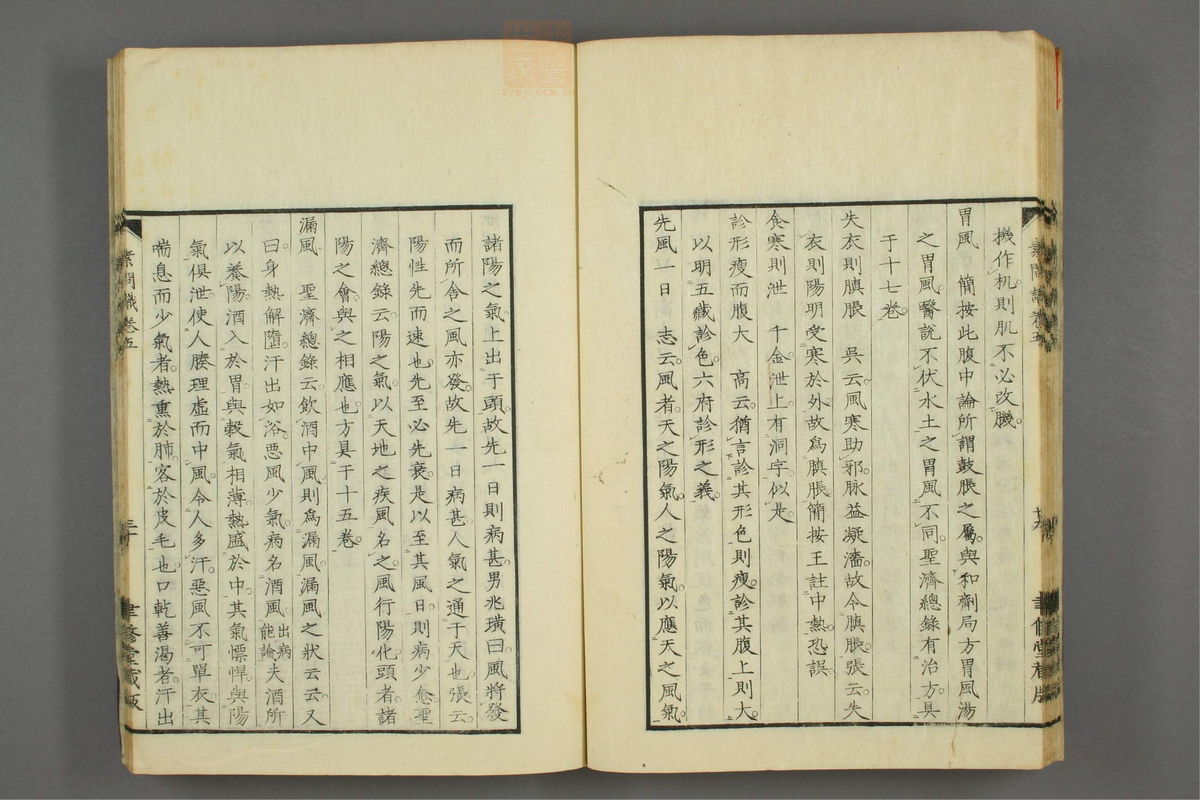 機作机則肌不必改膁
胃風　簡按此腹中論所謂鼓脹之屬與和劑局方胃風湯
之胃風醫說不伏水土之胃風不同聖濟總錄有治方具
于十七卷
失衣則䐜脹　吳云風寒助邪脉益凝濇故令䐜脹張云失
衣則陽明受寒於外故爲䐜脹簡按王註中熱恐誤
食寒則泄　千金泄上有洞字似是
診形瘦而腹大　高云猶言診其形色則瘦診其腹上則大
以明五藏診色六府診形之義
先風一日　志云風者天之陽氣人之陽氣以應天之風氣
諸陽之氣上出于頭故先一日則病甚男兆璜曰風將發
而所舍之風亦發故先一日病甚人氣之通于天也張云
陽性先而速也先至必先衰是以至其風日則病少愈聖
濟總錄云陽之氣以天地之疾風名之風行陽化頭者諸
陽之會與之相應也方具于十五卷
漏風　聖濟總錄云飲酒中風則爲漏風漏風之狀云云又
曰身熱解墮汗出如浴惡風少氣病名酒風出病能論夫酒所
以養陽酒入於胃與穀氣相薄熱盛於中其氣慓悍與陽
氣俱泄使人腠理虛而中風令人多汗惡風不可單衣其
喘息而少氣者熱熏於肺客於皮毛也口乾善渴者汗出
素問識卷五
三十
聿修堂藏版